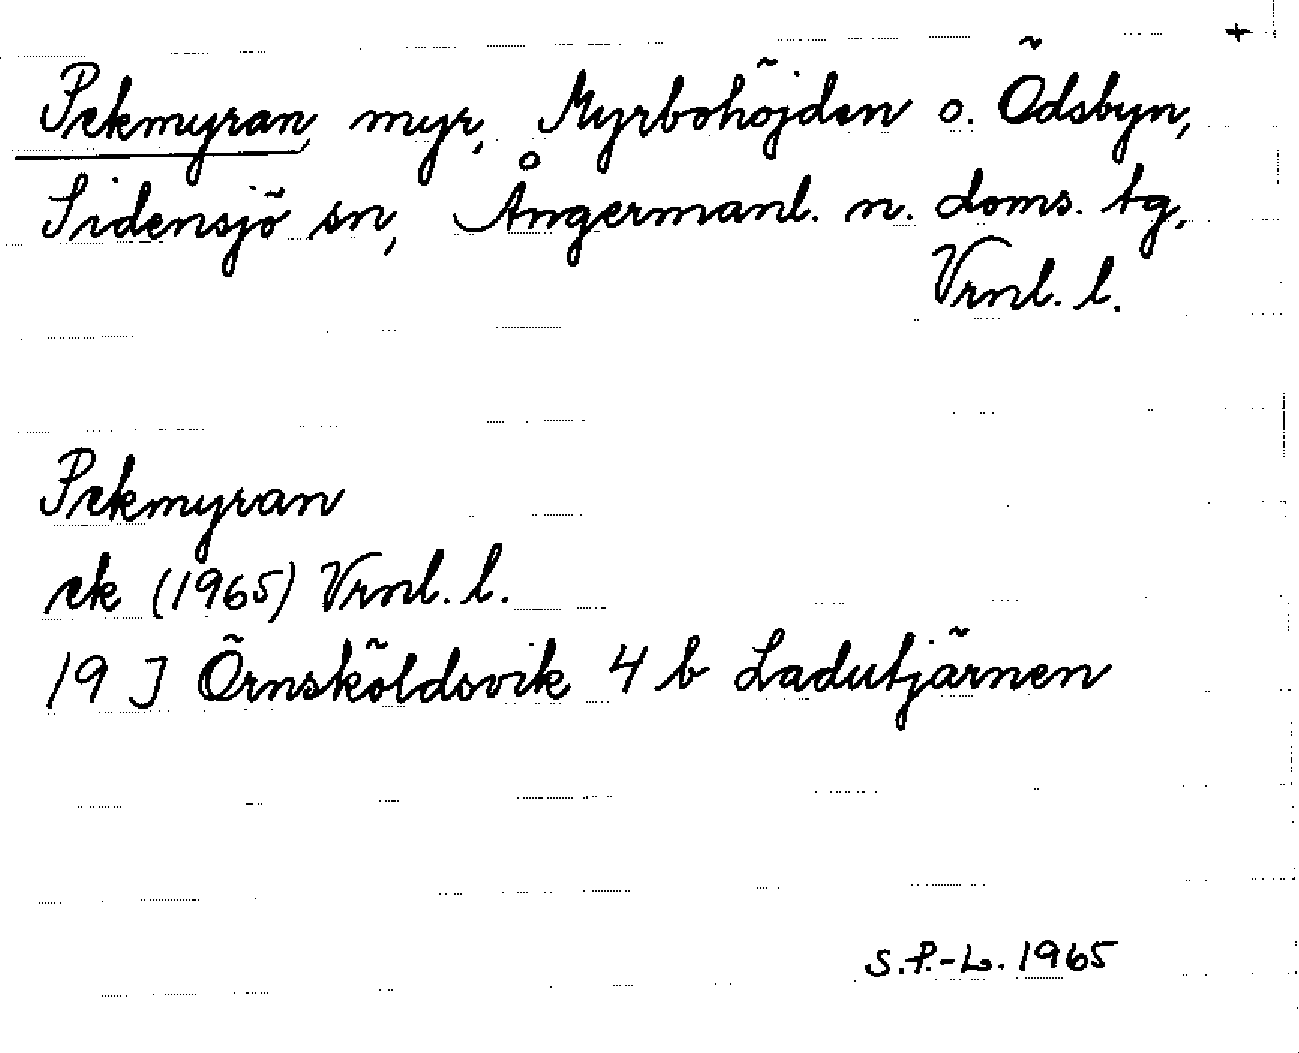 +
Pekmyran, myr, Myrbohöjden o. Ödsbyn,
Sidensjö sn, Ångermanl. n. doms. tg.
Vrnl. l.
Pekmyran
ek (1965) Vrnl. l.
19 J Örnsköldsvik 4 b Ladutjärnen
S.P.-L. 1965